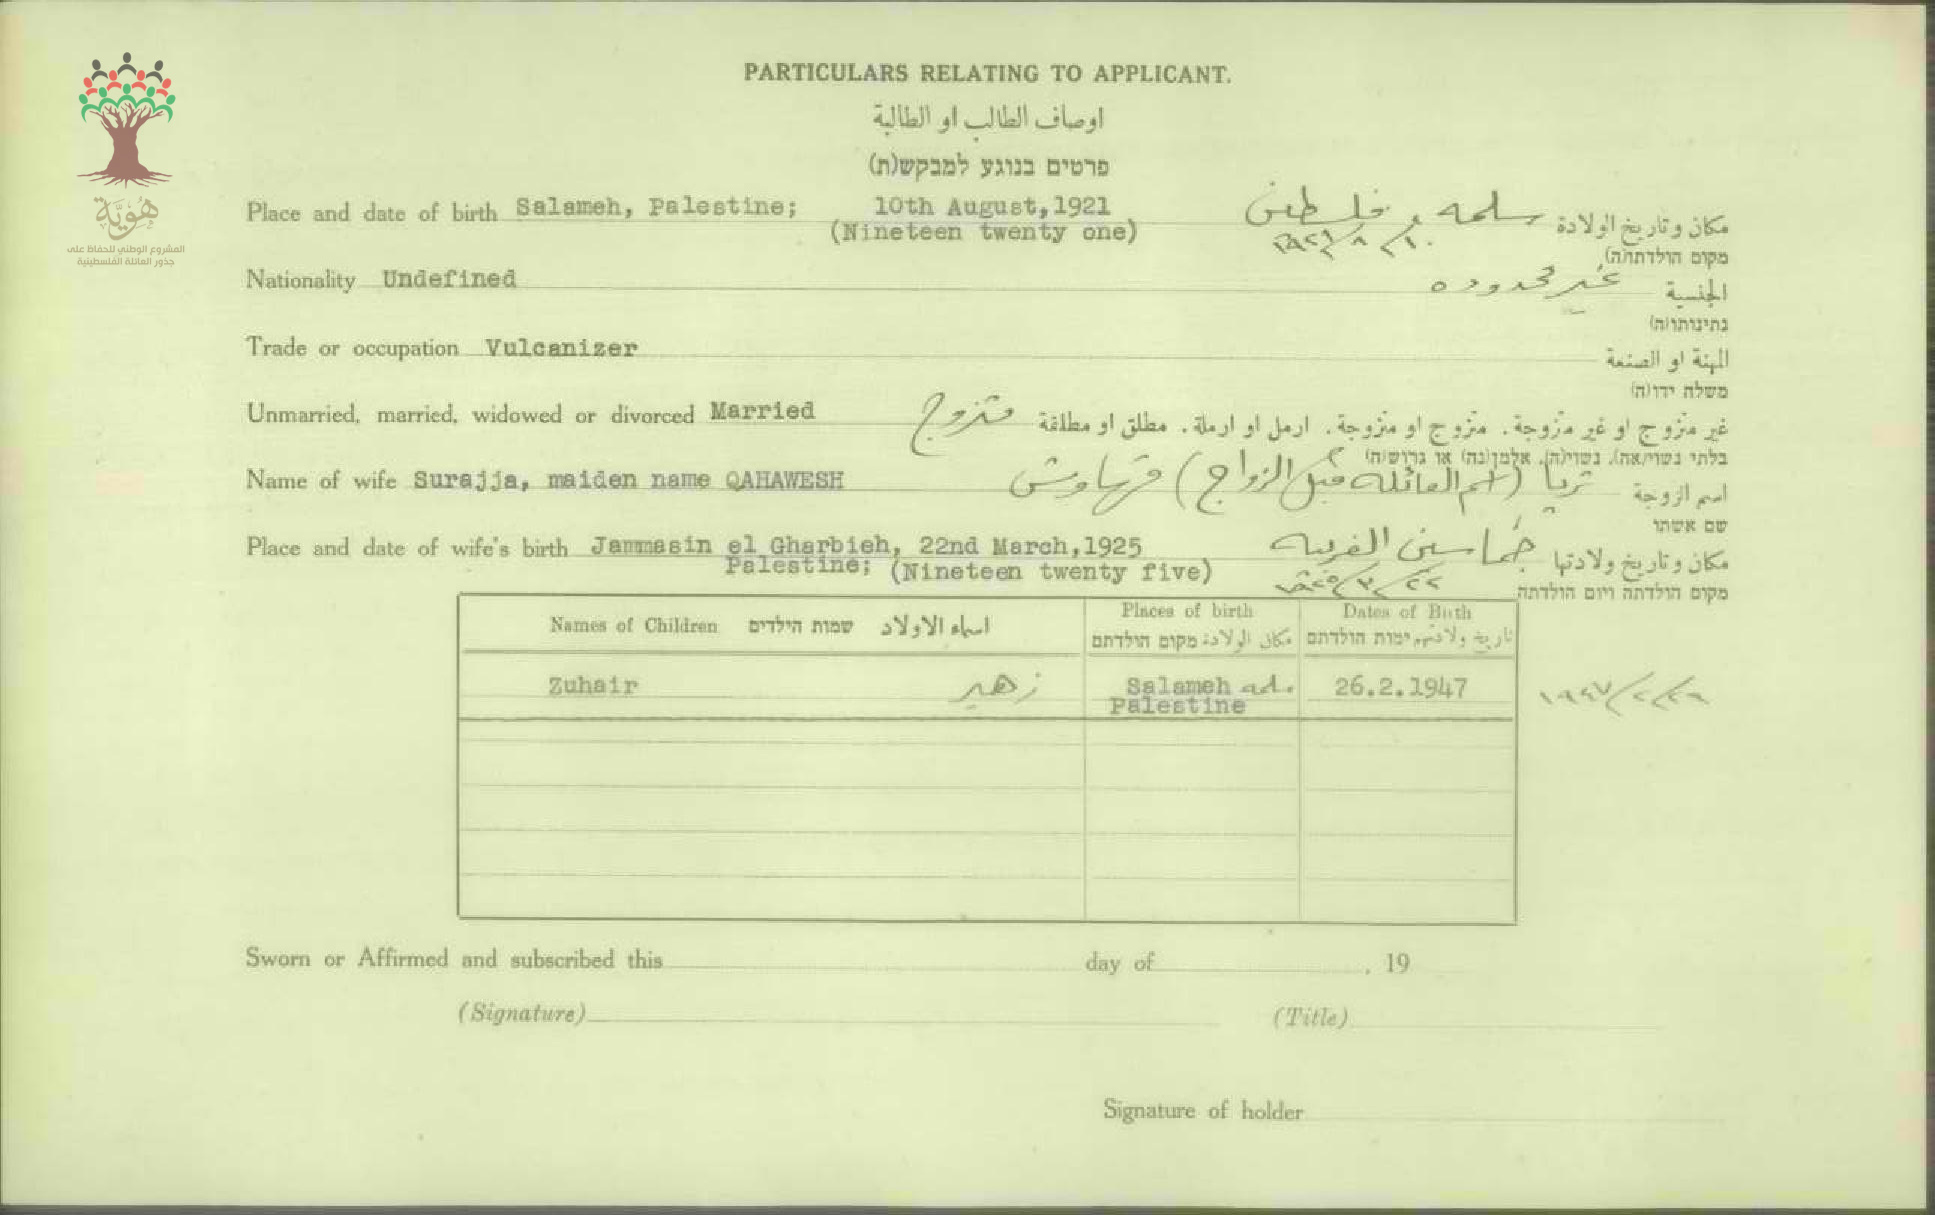 PARTICULARS RELATING TO APPLICANT.
اوصاف الطالب او الطالبة
פרטים בנוגע למבקש(ת)
هُوِيَّة
المشروع الوطني للحفاظ على
جذور العائلة الفلسطينية
Place and date of birth Salameh, Palestine; 10th August, 1921 سلمه و فلسطين مكان وتاريخ الولادة
(Nineteen twenty one) ١٠/٨/١٩٢١
מקום הולדתו(ה)
Nationality Undefined غير محدوده الجنسية
נתינותו(ה)
Trade or occupation Vulcanizer المهنة او الصنعة
משלח ידו(ה)
Unmarried, married, widowed or divorced Married متزوج غير متزوج او غير متزوجة. متزوج او متزوجة. ارمل او ارملة. مطلق او مطلقة
בלתי נשוי(אה), נשוי(ה), אלמן(נה) או גרוש(ה)
Name of wife Surajja, maiden name QAHAWESH ثريا (اسم العائلة قبل الزواج) قهاوش اسم الزوجة
שם אשתו
Place and date of wife's birth Jammasin el Gharbieh, 22nd March, 1925 جماسين الغربيه مكان وتاريخ ولادتها
Palestine; (Nineteen twenty five) ٢٢/٣/١٩٢٥
מקום הולדתה ויום הולדתה
Names of Children שמות הילדים اسماء الاولاد Places of birth Dates of Birth
מקום הולדתם مكان الولادة ימות הולדתם تاريخ ولادتهم
Zuhair زهير Salameh سلمه 26.2.1947 ١٩٤٧/٢/٢٦
Palestine
Sworn or Affirmed and subscribed this day of , 19
(Signature) (Title)
Signature of holder